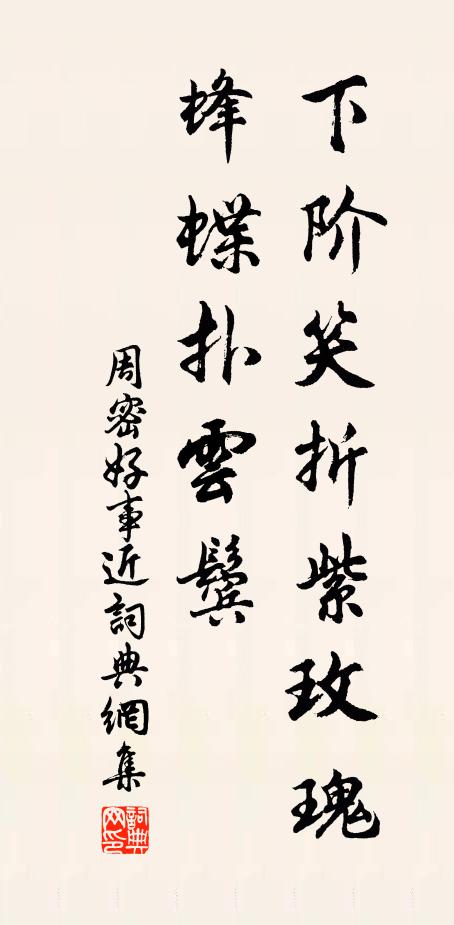 下阶笑折紫玫瑰
蜂蝶扑雲鬓
周密好事近詞典網集
詞典网印